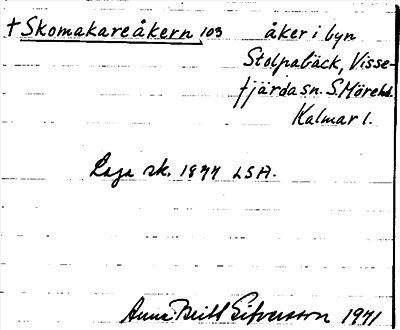 +Skomakareåkern 103 åker i byn
Stolpabäck, Visse-
fjärda sn. S. Möre hd.
Kalmar l.
Laga sk. 1877 LSA.
Anna Britt Sifversson 1971